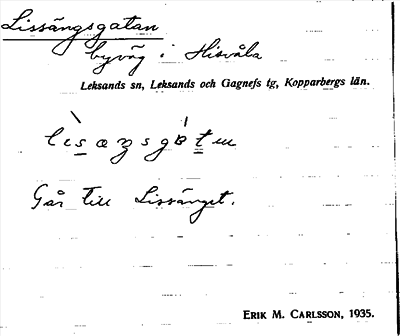 Lissängsgatan
byväg i Hisvåla
Leksands sn, Leksands och Gagnefs tg, Kopparbergs län.
Går till Lissänget.
ERIK M. CARLSSON, 1935.